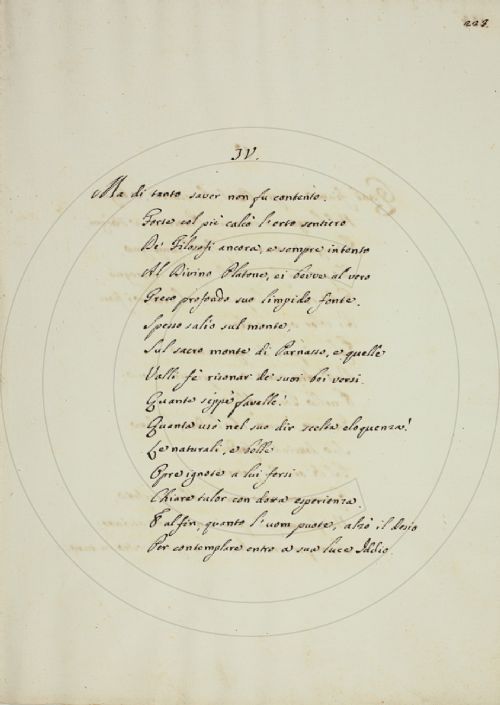 228.
IV.
Ma di tanto saver non fu contento.
Forte col piè calcò l'erto sentiero
De' Filosofi ancora, e sempre intento
Al Divino Platone, ei bevve al vero
Greco profondo suo limpido fonte.
Spesso salìo sul monte,
Sul sacro monte di Parnasso, e quelle
Valli fè risonar de' suoi bei versi.
Quante seppe favelle!
Quanta usò nel suo dir scelta eloquenza!
Le naturali, e belle
Opre ignote a lui fersi
Chiare talor con dotta esperienza.
E alfin, quanto l'uom puote, alzò il desio
Per contemplare entro a sua luce Iddio.